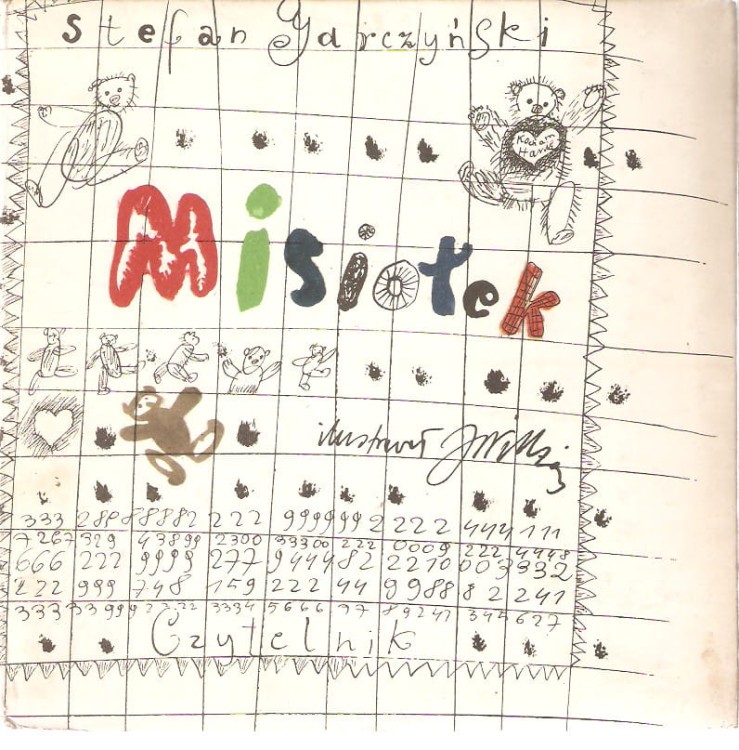 Stefan Garczyński
Kocham
Misiołek
ilustrował JWilkoń
333 288 88882 222 999999 2 222 444 111
7267 329 43899 2300 33300 222 0009 222 4448
666 222 9999 277 944482 2210 003 332
222 999 748 159 222 44 9988 8 2 241
333 33 999 2222 3334 5666 77 89241 345627
Czytelnik